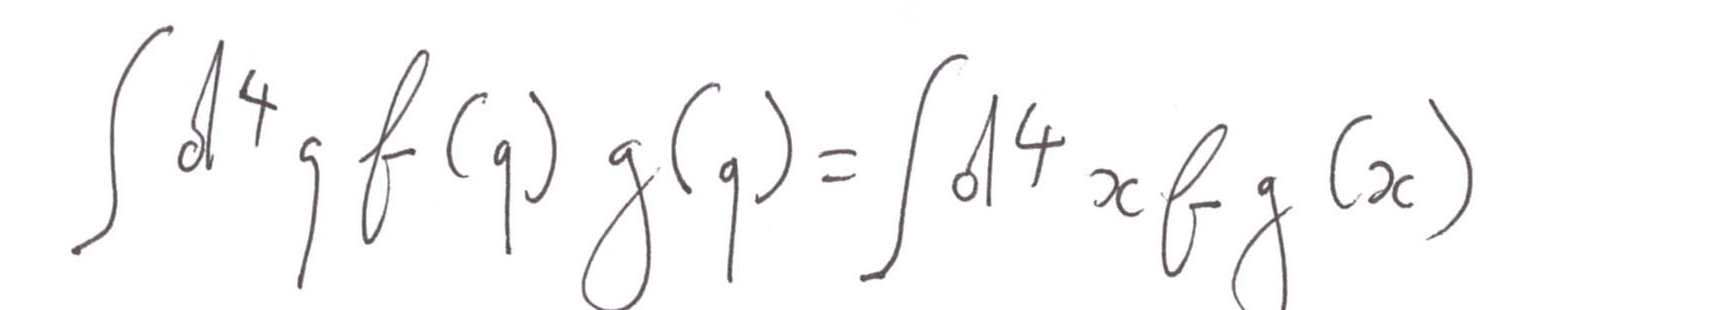 ∫d⁴q f(q) g(q) = ∫d⁴x f g (x)